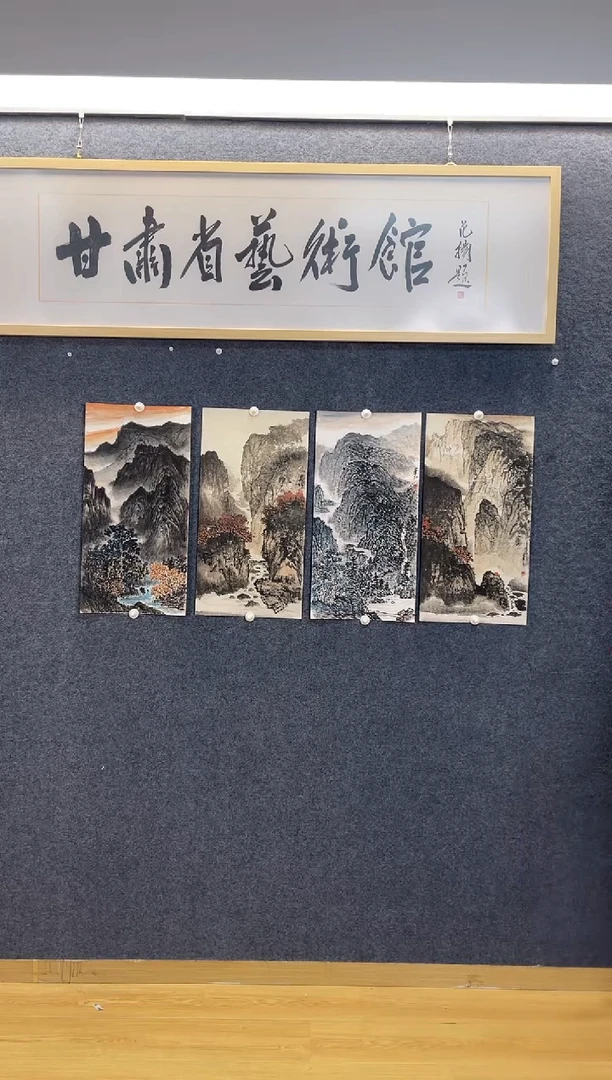 甘肅省藝術館
范擒題